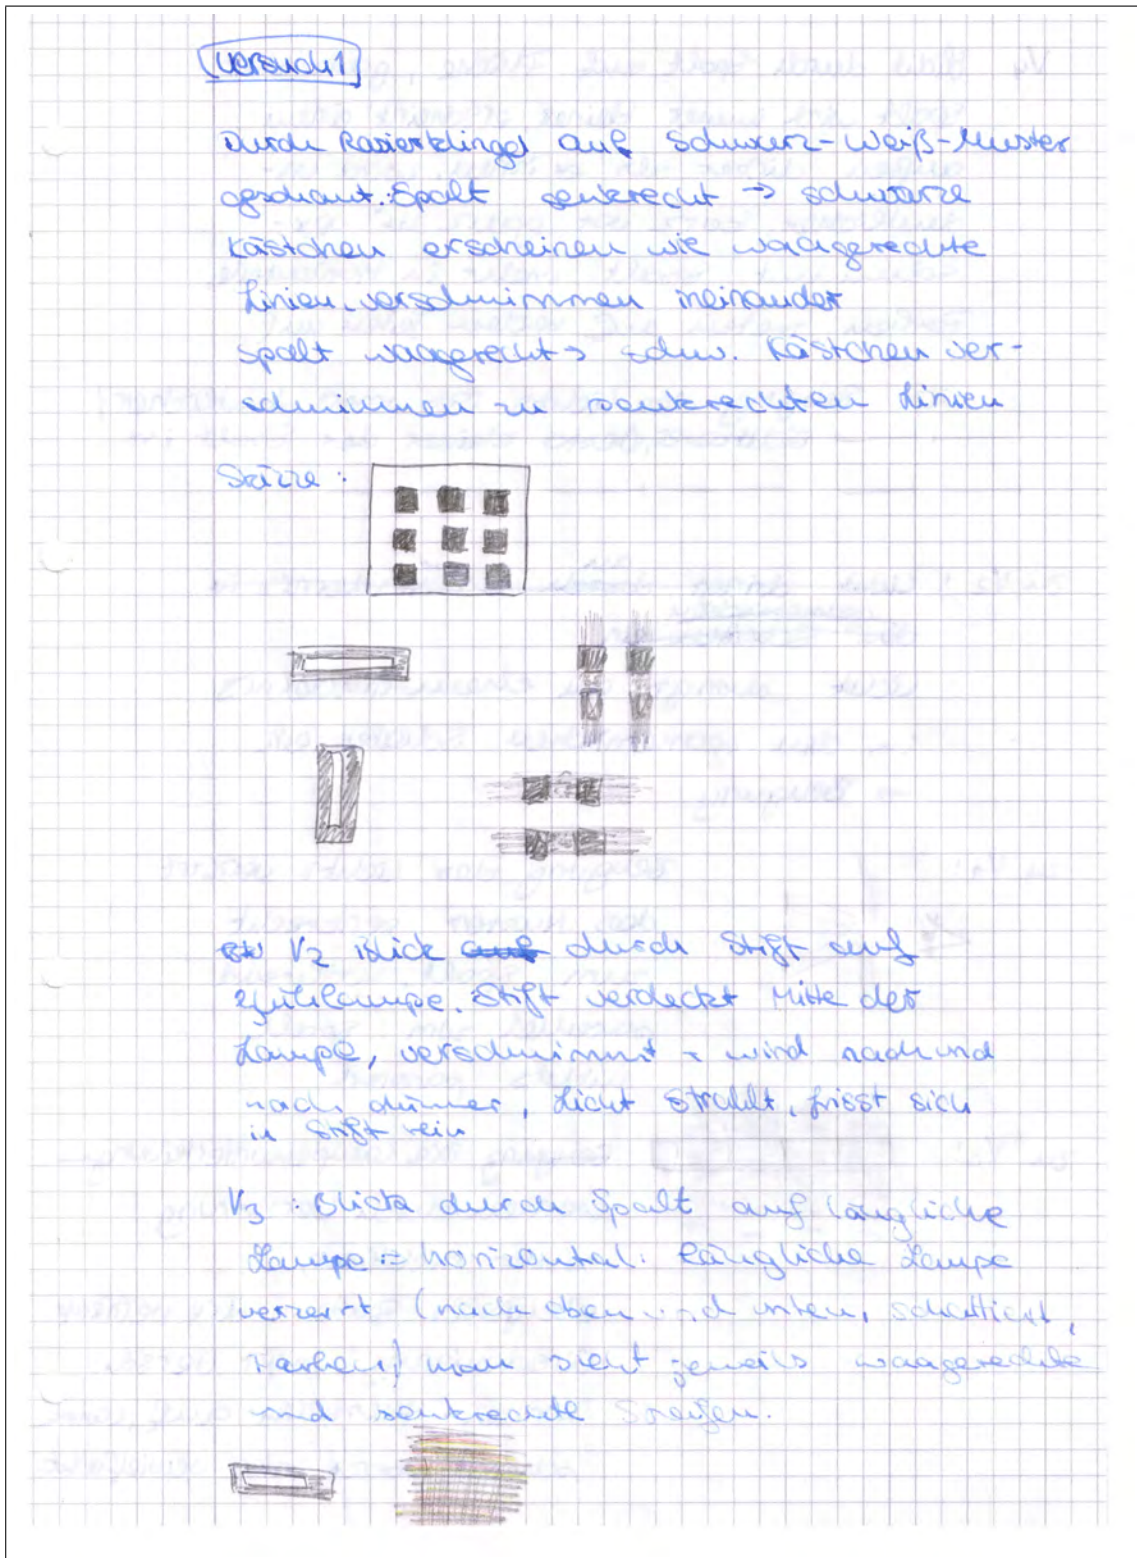 Versuch 1
Durch Rasierklingel auf Schwarz-Weiß-Muster
geschaut. Spalt senkrecht → schwarze
Kästchen erscheinen wie waagerechte
Linien, verschwimmen ineinander
Spalt waagerecht → schw. Kästchen ver-
schwimmen zu senkrechten Linien
Skizze :
V2 Blick auf durch Stift auf
Glühlampe. Stift verdeckt Mitte der
Lampe, verschwimmt - wird nach und
nach dünner, Licht strahlt, frisst sich
in Stift rein
V3 : Blick durch Spalt auf längliche
Lampe = horizontal. längliche Lampe
verzerrt (nach oben und unten, schattiert,
Farben) man sieht jeweils waagerechte
und senkrechte Streifen.